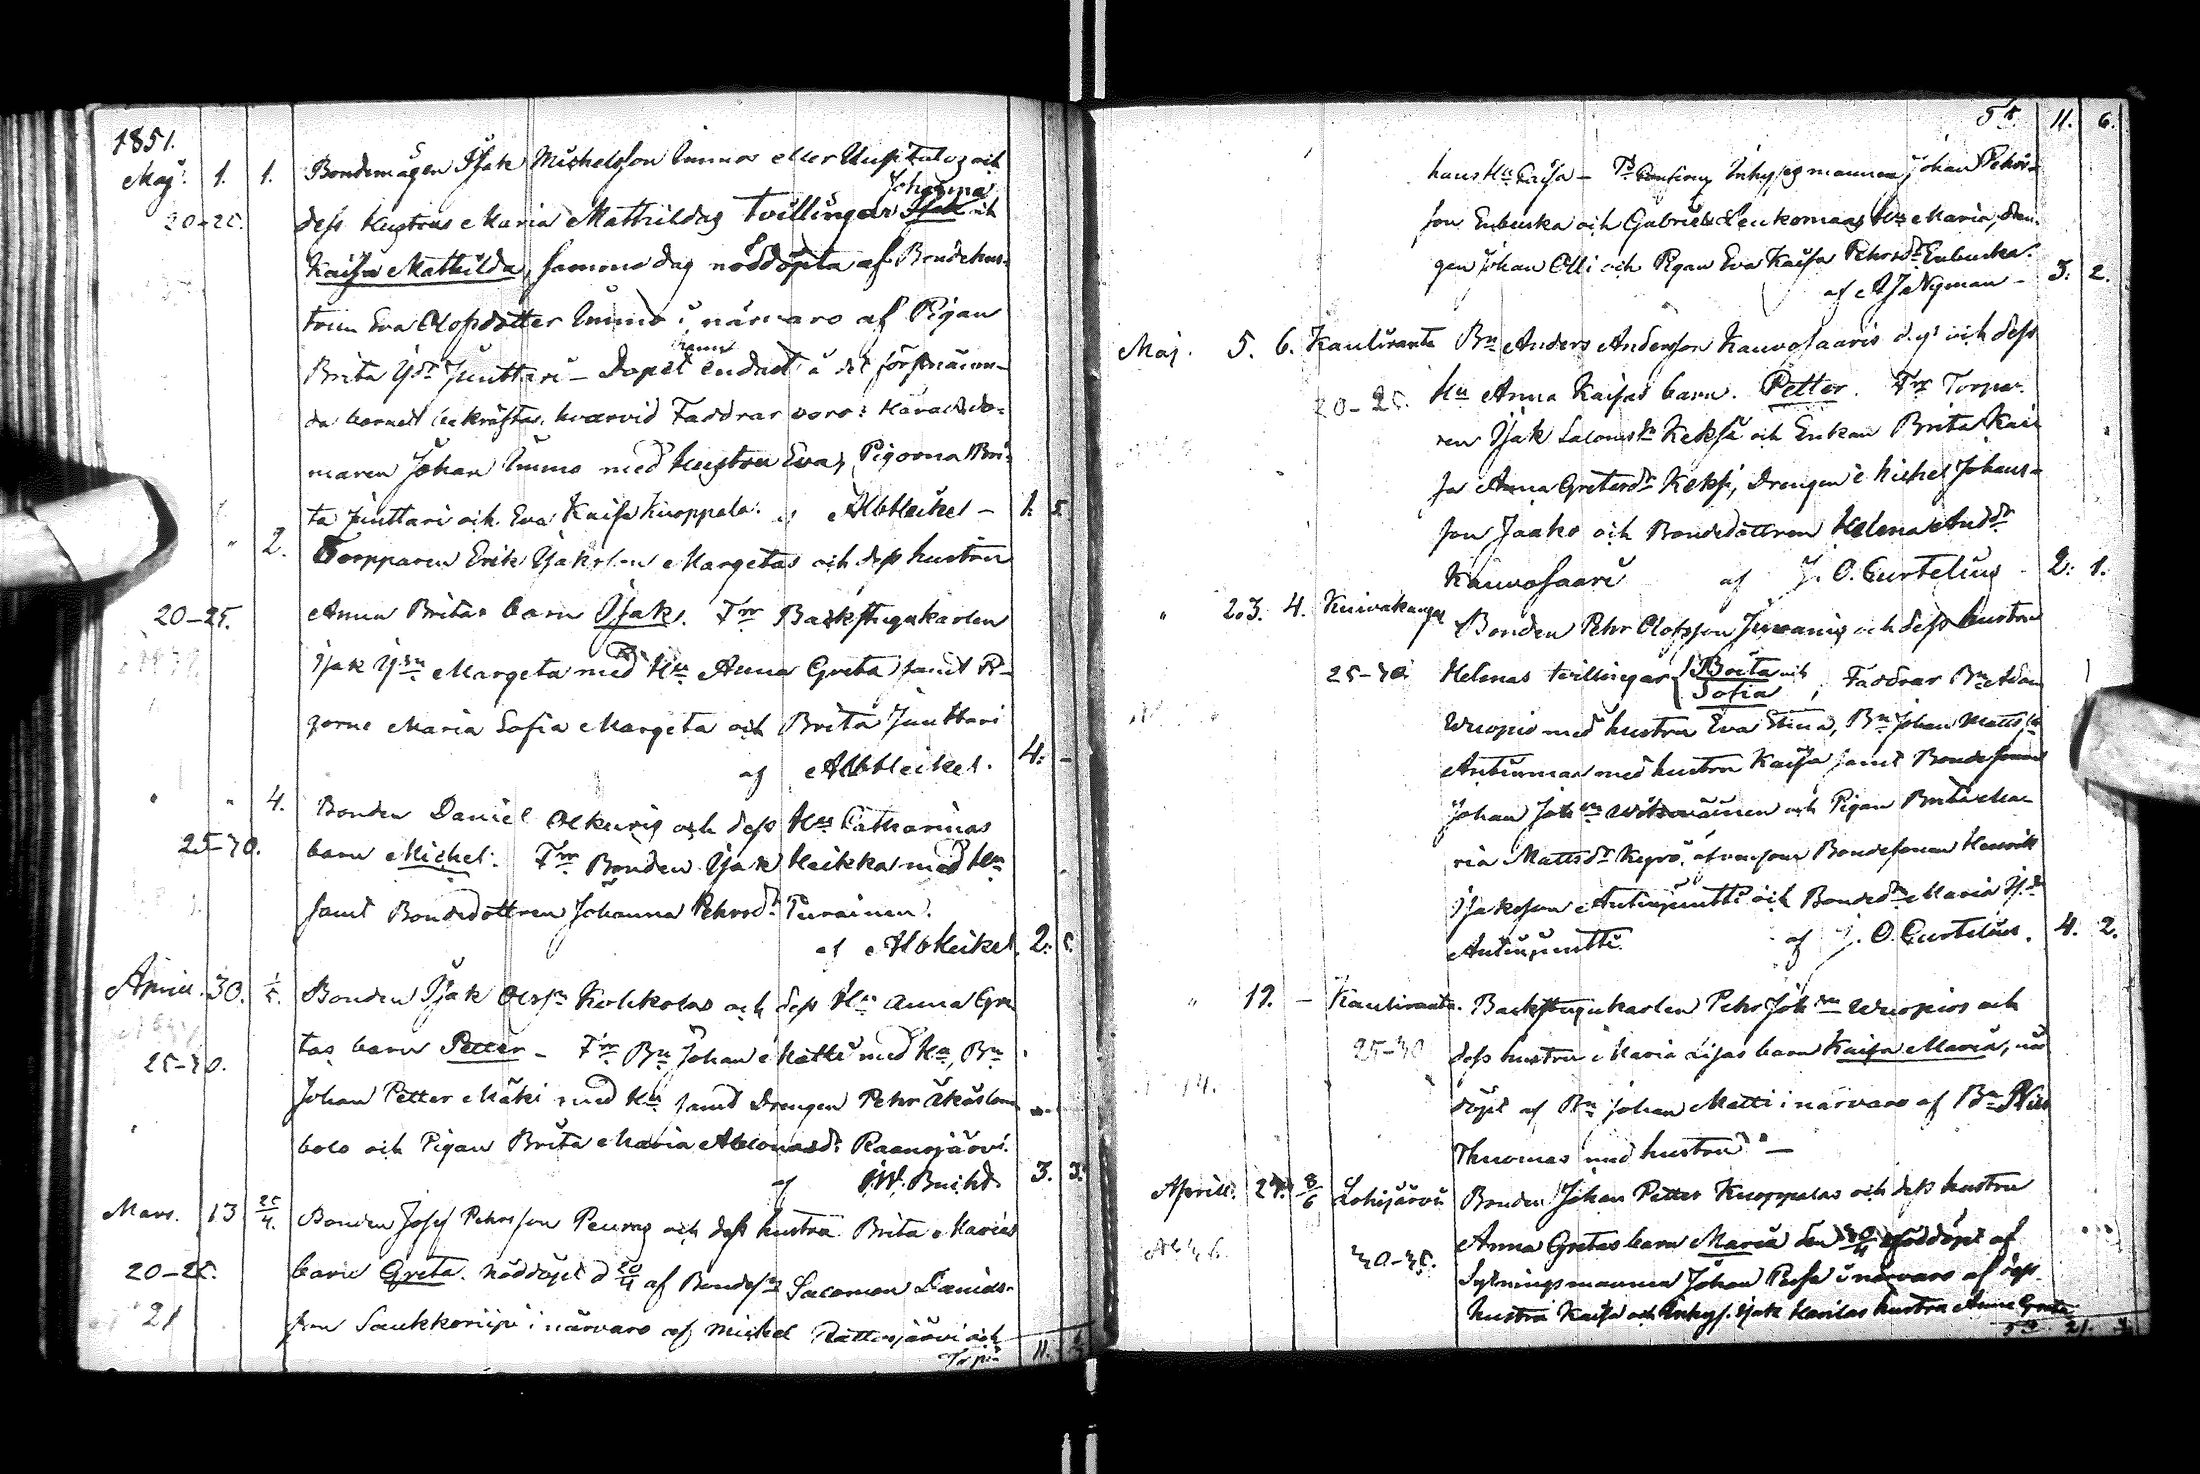 1851.
Maj. 1. 1. Bondemågen Isak Michelsson Immos eller och
Johanna
20-25. dess hustrus Maria Mathildas tvillingar Isak och
Kaisa Mathilda, samma dag nöddöpta af Bondehus-
trun Eva Olofsdotter Immo i närvaro af Pigan
Brita Isdr Junttari - Dopet endast å det förstnämn-
da barnet bekräftas, hvarvid Faddrar voro: Häradsdo-
maren Johan Immo med hustru Eva, Pigorna Bri-
ta Junttari och Eva Kaisa Kuoppala. af Alb Heikel - 1. 5.
" 2. Torpparen Erik Isaksson Margetas och dess hustru
20-25. Anna Britas barn Isak. Frr Backstugukarlen
Isak Issn Margeta med Hu Anna Greta samt Pi-
gorne Maria Sofia Margeta och Brita Junttari
af Alb Heikel. 4. -
" " 4. Bonden Daniel Alkuris och dess Hus Catharinas
25-30. barn Michel. Frr Bonden Isak Heikka med Hu
samt Bondedottren Johanna Pehrsdr Turainen.
af Alb Heikel. 2.
April. 30. 1/5. Bonden Isak Olsfsn Kohkolas och dess Hu Anna Gre
25-30. tas barn Petter - Frr Bn Johan Matti med Hu, Bn
Johan Petter Mäki med Hu samt Drengen Pehr Äkäslom
bolo och Pigan Brita Maria Raanojärvi.
af 3. 3.
Mars. 13 25/4. Bonden Josef Pehrsson Peuras och dess hustru Brita Marias
20-25. barn Greta. Nöddöpt d 20/4 af Bondesn Salomon Daniels-
21 son Saukkoriipi i närvaro af Michel Rattosjärvi och
11. 6.
11. 6.
hans Hu Kaisa - Inhysesmannen Johan Pehrs-
son Enbuska och Gabriel Leukomaas Hu Maria, Dren-
gen Johan Olli och Pigan Eva Kaisa Pehrsdr Enbuska.
af A J Nyman - 3. 2.
Maj. 5. 6. Kauliranta Bn Anders Andersson Kauvosaaris d.y: och dess
20-25. Hu Anna Kaisas barn. Petter. Frr Torpa-
ren Isak Salomssn Keksi och Enkan Brita Kai
sa Anna Gretasdr Keksi, Drengen Michel Johans-
son Jaako och Bondedottren Helena Andsdr
Kauvosaari af J. O. Curtelius - 2. 1.
" 23. 4. Kuivakangas Bonden Pehr Olofsson Juvanis och dess hustru
25-30. Helenas tvillingar Brita och
Sofia; Faddrar Bn Adam
Wuopio med hustru Eva Stina, Bn Johan Mattssn
Antinmaa med hustru Kaisa samt Bondesonen
Johan Johssn och Pigan Brita Ma-
ria Mattsdr Kyrö, äfvensom Bondesonen Henrik
Isaksson Antinjuntti och Bondedr Maria Isdr
Antinjuntti. af J. O. Curtelius. 4. 2.
" 19. - Kauliranta. Backstugukarlen Pehr Johssn Wuopios och
25-30 dess hustru Maria Lisas barn Kaisa Maria, nöd
döpt af Bn Johan Matti i närvaro af Bn Nils
Thuomas med hustru -
April. 24. 8/6 Lohijärvi Bonden Johan Petter Kuoppalas och dess hustru
40-45. Anna Gretas barn Maria den 30/4 nöddöpt af
Sytningsmannen Johan Pessa i närvaro af dess
hustru Kaisa och Inhys. Isak Harilas hustru Anna Greta
21.